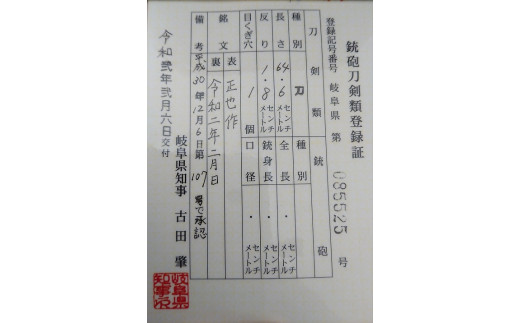 銃砲刀剣類登録証
登録記号番号 岐阜県 第 085525 号
刀剣類 銃砲
種別 刀 種別
長さ 64・6センチメートル 全長 ・ センチメートル
反り 1・8センチメートル 銃身長 ・ センチメートル
目くぎ穴 1個 口径 ・ センチメートル
銘文 表 正也作
裏 令和二年二月日
備考 平成30年12月6日第107号で承認
令和弐年弐月六日交付
岐阜県知事 古田 肇
岐阜県
知事之